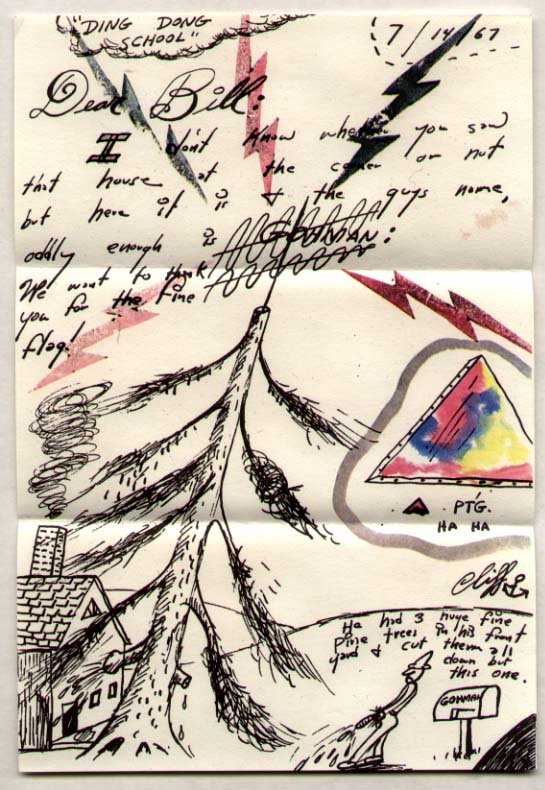 "DING DONG
SCHOOL"
7/14/67
Dear Bill:
I don't know whether you saw
that house at the corner or not
but here it is & the guys name,
oddly enough is GOHMAN:
We want to thank
you for the fine
flag!
PT'G.
HA HA
Cliff
He had 3 huge fine
pine trees in his front
yard & cut them all
down but
this one.
GOHMAN